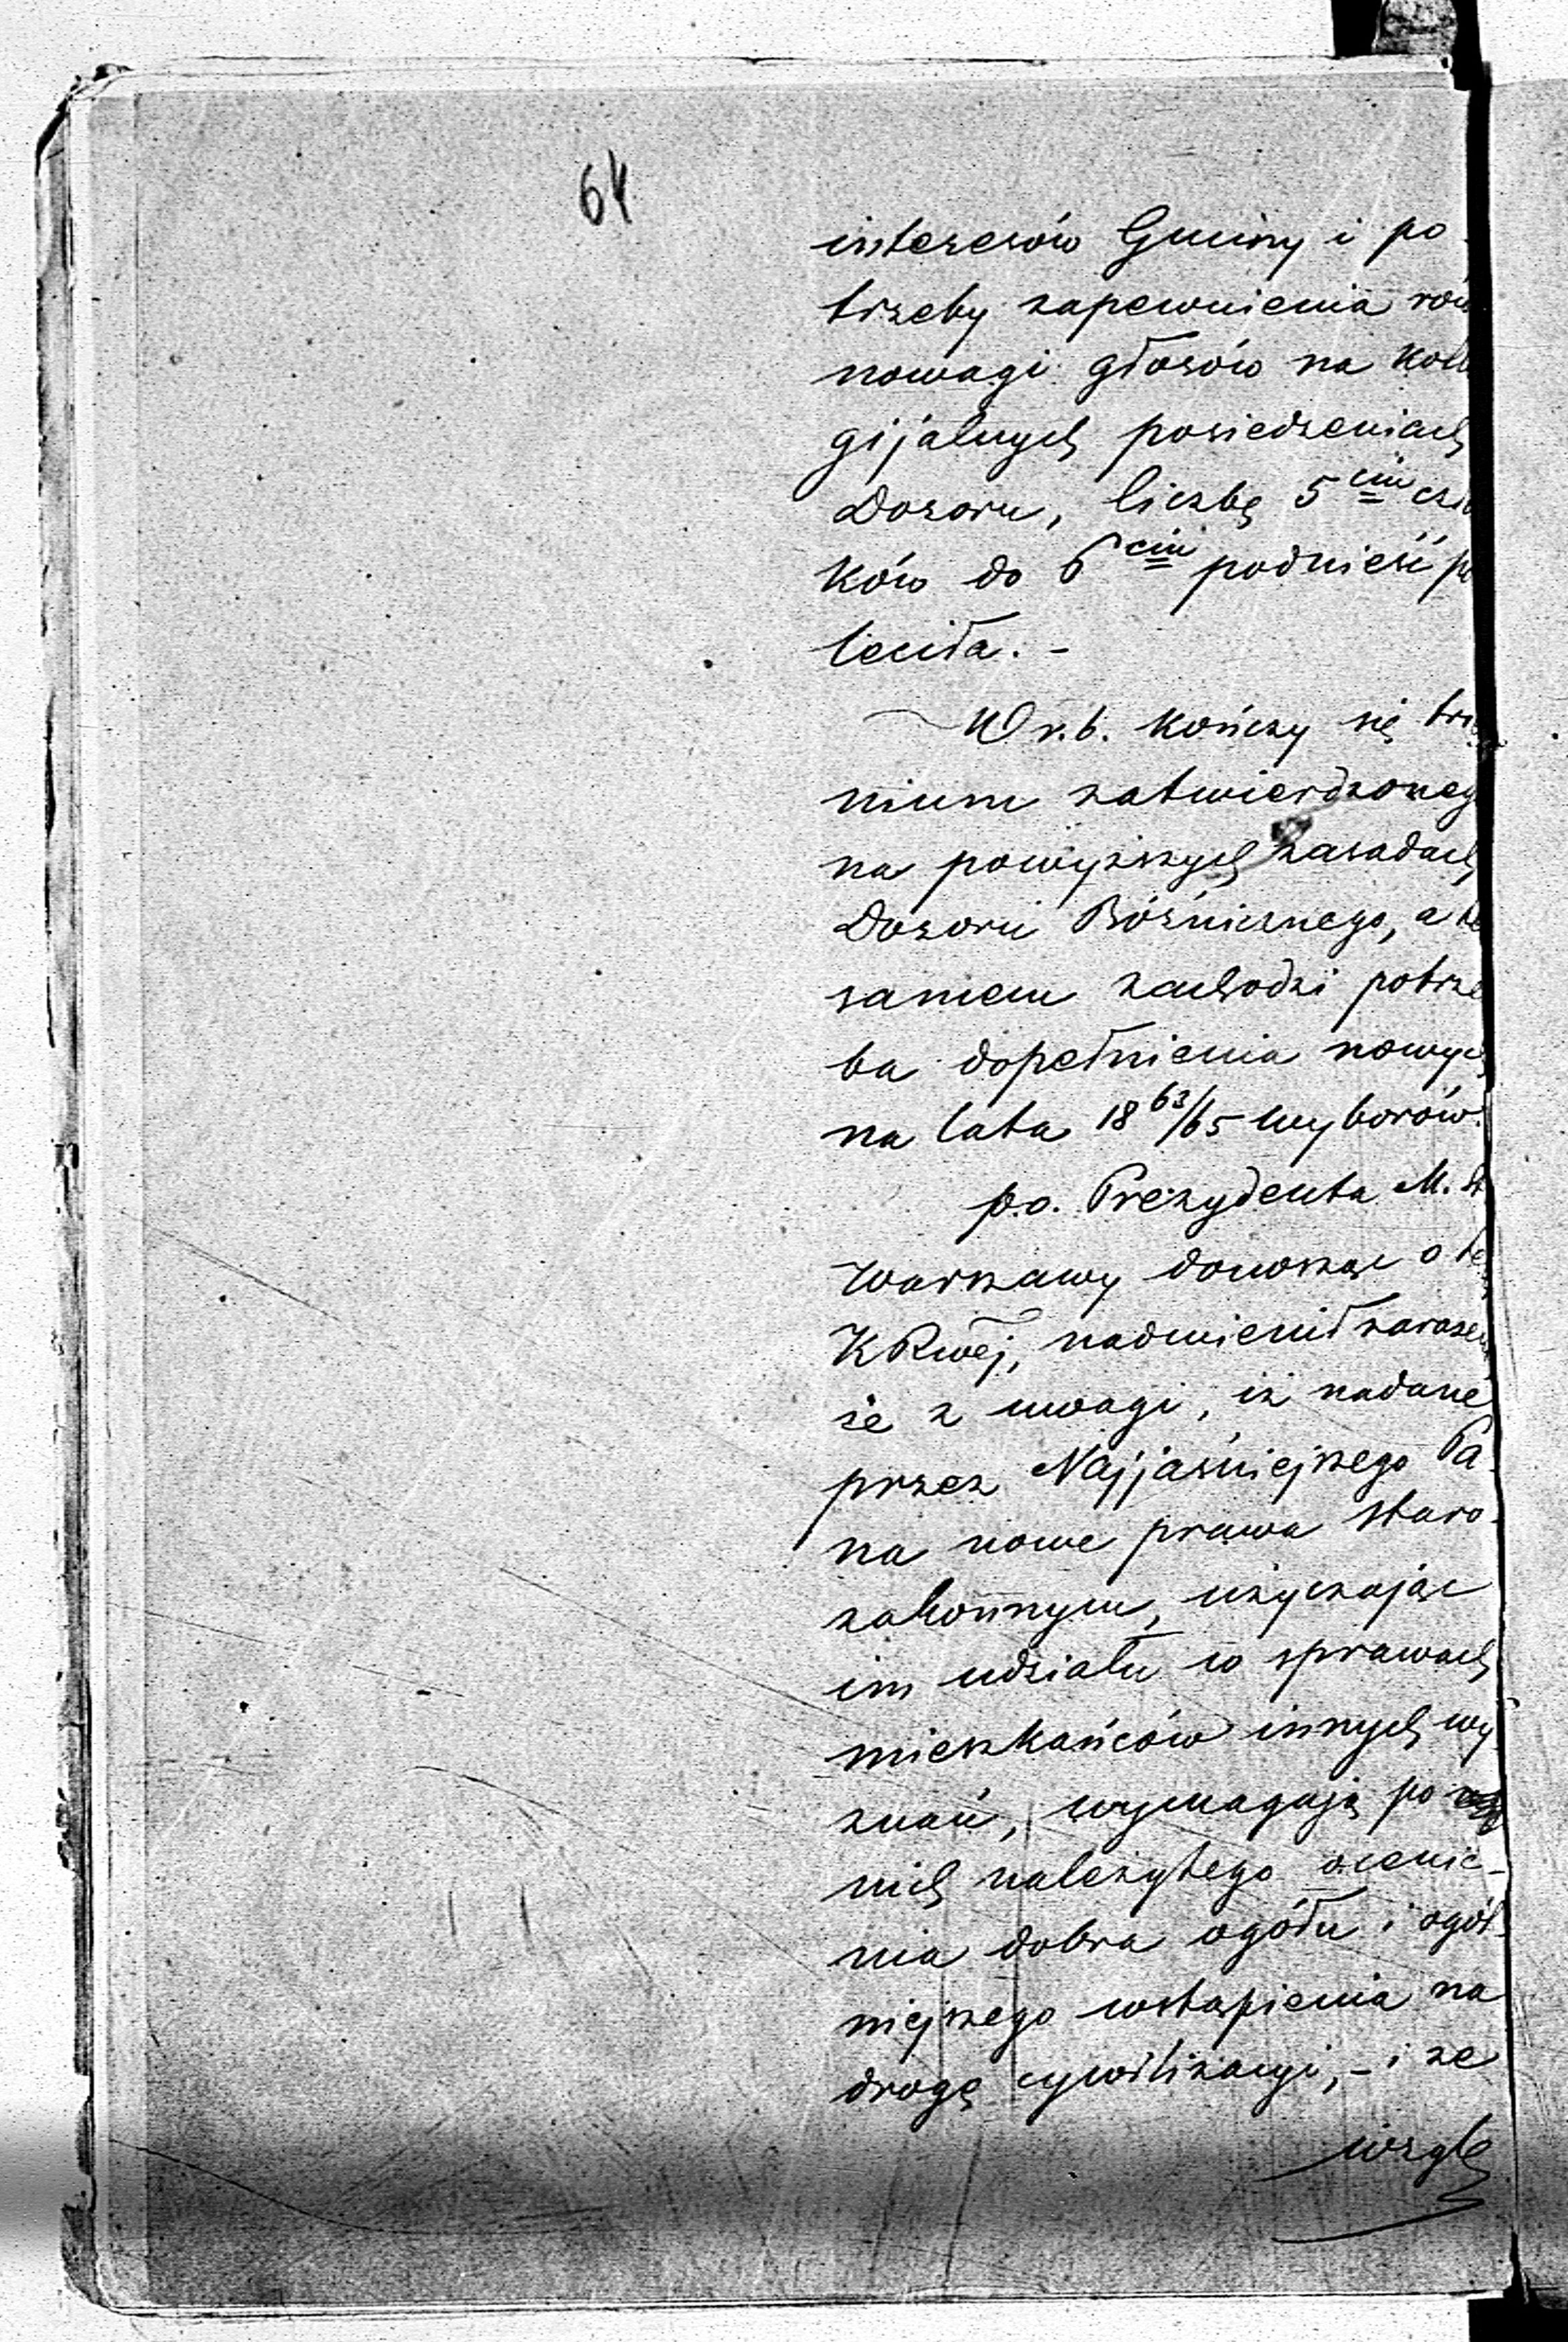 64
interesów Gminy i po-
trzeby zapewnienia rów
nowagi głosów na kolle
gijalnych posiedzeniach
Dozoru, liczbę 5ciu czło
ków do 6ciu podnieść po
leciła. -
W r.b. kończy się trie
nium zatwierdzonego
na powyższych zasadach
Dozoru Bóźnicznego, a te
samem zachodzi potrze
ba dopełnienia nowych
na lata 18 63/65 wyborów.
p.o. Prezydenta M. St.
Warszawy donosząc o tem
K Rwéj, nadmienił zarazem
że z uwagi, iż nadane
przez Najjaśniejszego Pa-
na nowe prawa staro-
zakonnym, użyczając
im udziału w sprawach
mieszkańców innych wy-
znań, wymagają po
nich należytego ocenie-
nia dobra ogółu i ogól-
niejszego wstąpienia na
drogę cywilizacyi, - i ze
wzglę